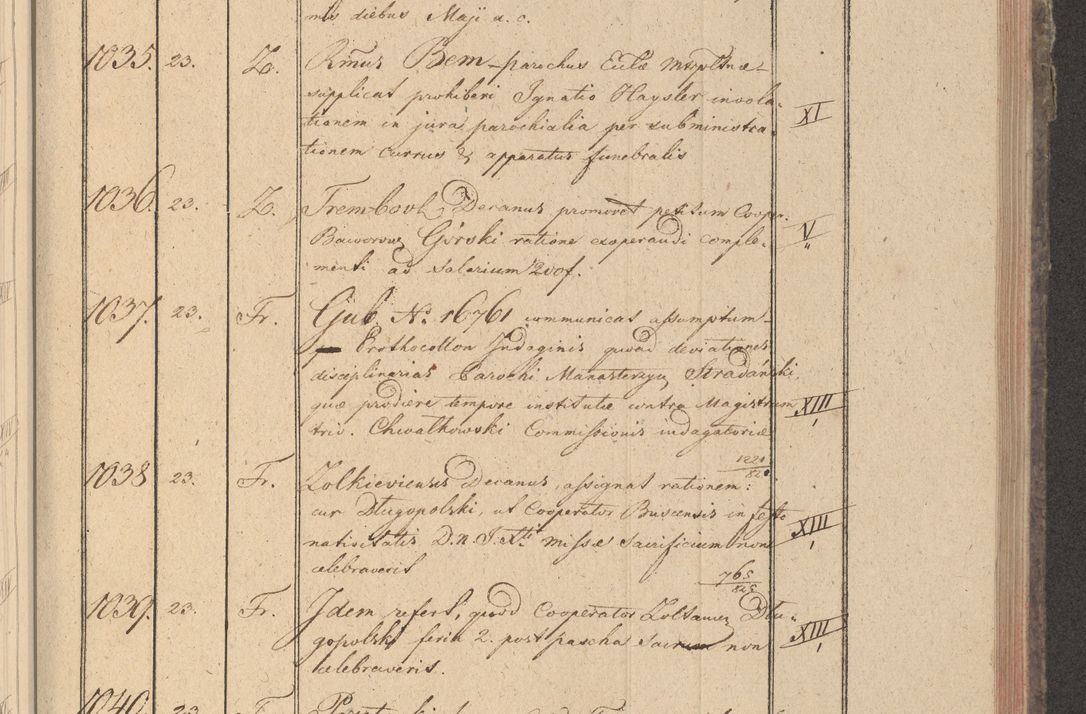 mis diebus Maji a. c.
1035. 23. Z. Rm̃us Bem parochus Eccłæ Mtrpltnæ
supplicat prohiberi Ignatio Haysler invola-
tionem in jura parochialia per subministra- XI
tionem currus & apparatus funebralis
1036. 23. Z. Trembovl. Decanus promovet petitum Cooper.
Baworow. Górski ratione exoperandi comple- V
menti ad salarium 200f.
1037. 23. Fr. Gub. No. 16761 communicat assumptum
Prothocollon Indaginis quoad deviationes
disciplinarias Parochi Manasterzyn, Stradański,
quæ prodiere tempore institutæ contra Magistrum XIII
triv. Chwatkowski Commissionis indagatoriæ
1221
82
1038 23. Fr. Zolkieviensis Decanus, assignat rationem:
cur Długopolski, ut Cooperator Buscensis in feste
nativitatis D. n. J. Xti missæ sacrificium non XIII
celebraverit
765
825
1039. 23. Fr. Idem refert, quod Cooperator Zoltance, Dłu-
gopolski feria 2. post pascha sacrum non XIII
celebraveris.
1040. 23 Fr.